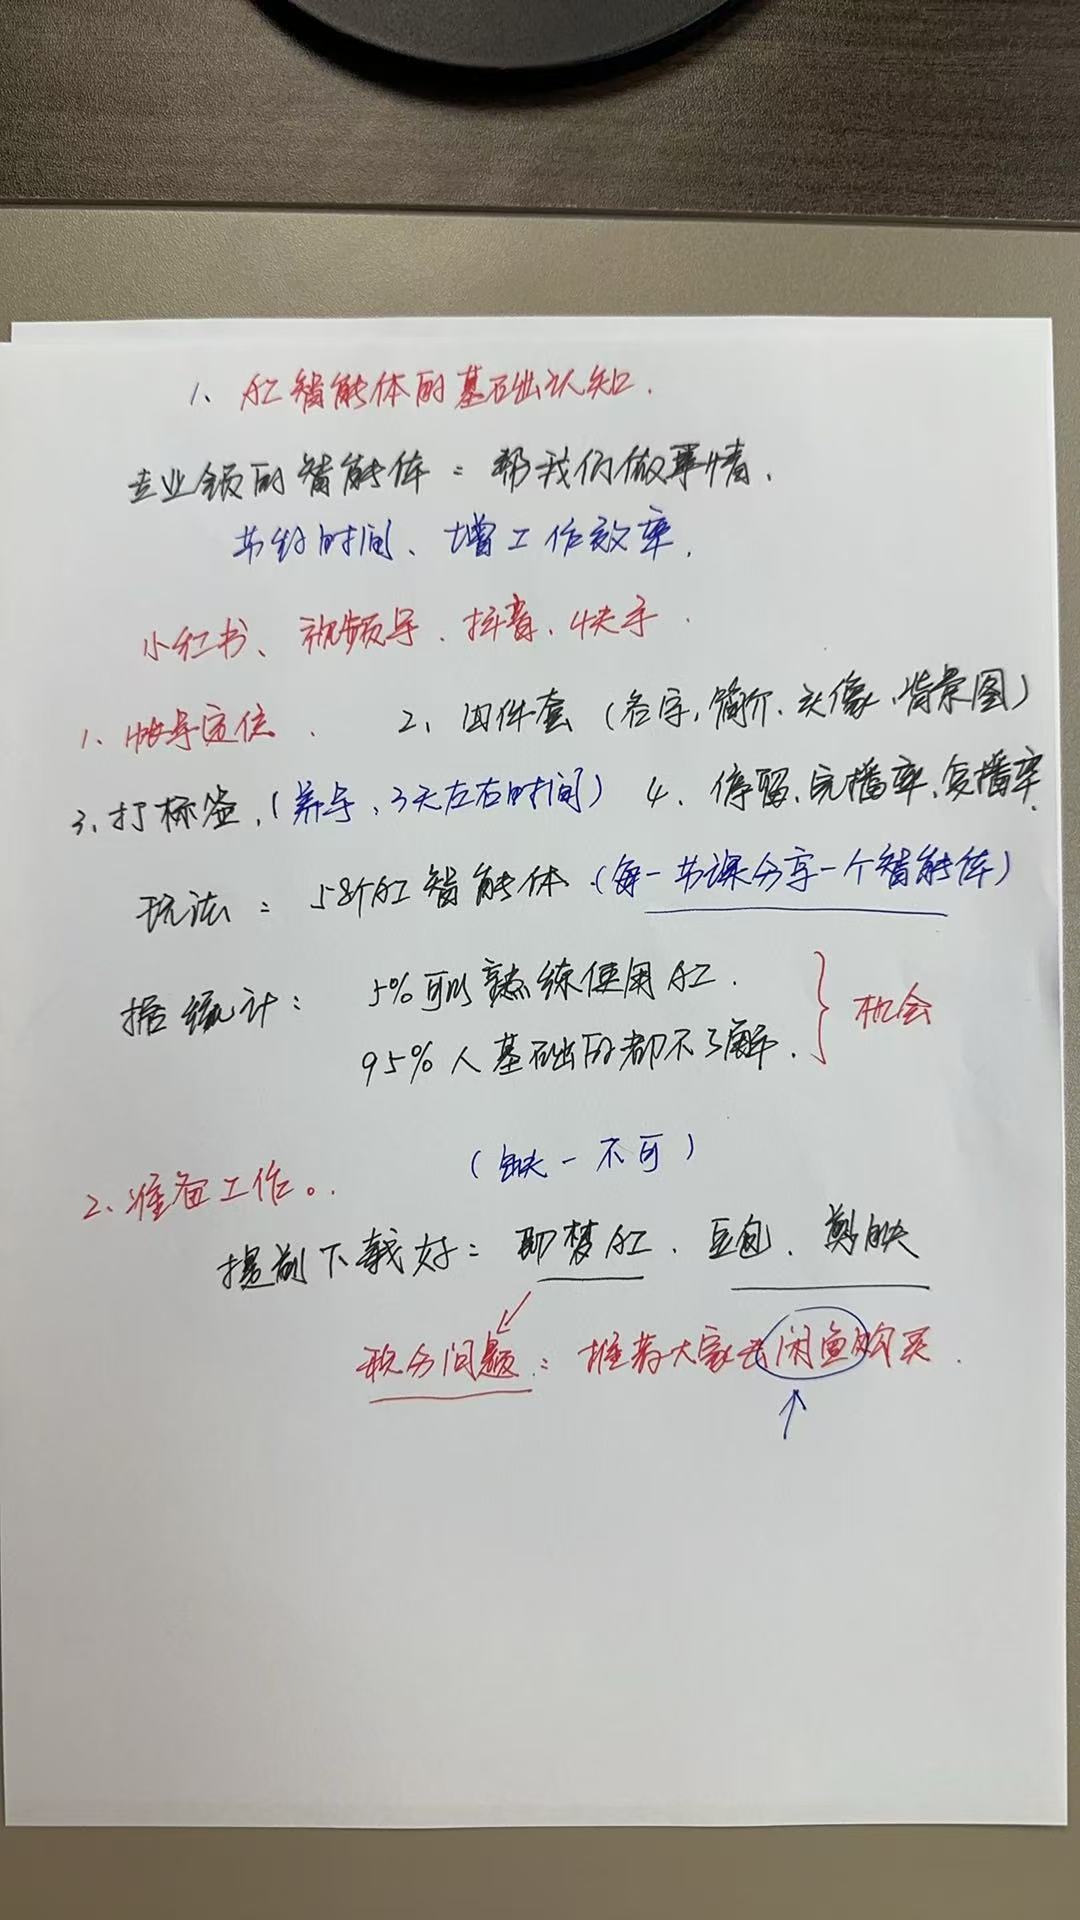 1、AI智能体的基础认知.
专业领的智能体：帮我们做事情.
节约时间、增工作效率.
小红书、视频号、抖音、快手.
1、帐号定位. 2、四件套（名字,简介、头像、背景图）
3、打标签.（养号,3天左右时间） 4、停留、完播率、复播率.
玩法：58个AI智能体.（每一节课分享一个智能体）
据统计：5%可以熟练使用AI.
95%人基础的都不了解. 机会
（缺一不可）
2、准备工作。.
提前下载好：即梦AI、豆包、剪映
积分问题：推荐大家去闲鱼购买.